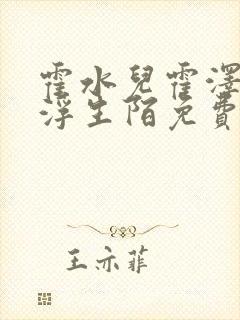 霍水兒霍澤
浮生陌免費
王亦菲